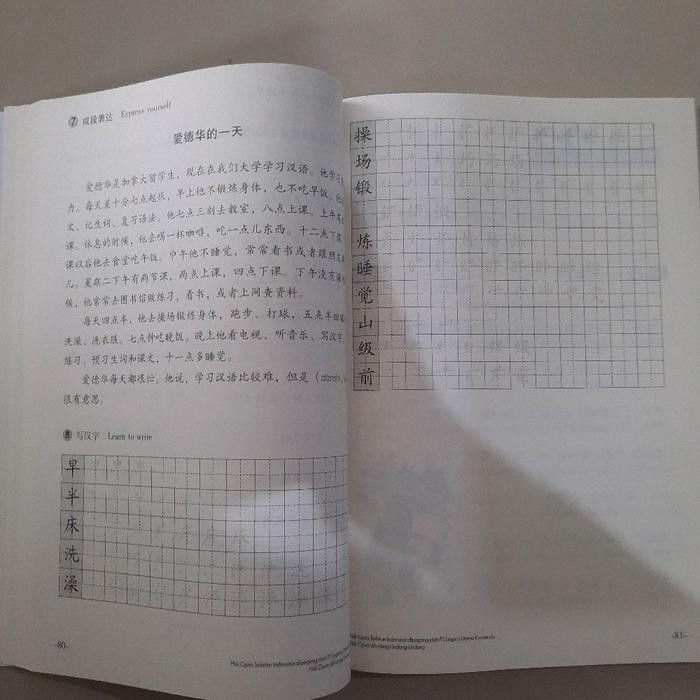 7 成段表达 Express yourself
爱德华的一天
爱德华是加拿大留学生，现在在我们大学学习汉语。他学习
力。每天差十分七点起床，早上他不锻炼身体，也不吃早饭。他
文、记生词、复习语法。他七点三刻去教室，八点上课。上午有
课。休息的时候，他去喝一杯咖啡，吃一点儿东西。十二点下课
课以后他去食堂吃午饭。中午他不睡觉，常常看书或者跟朋友
儿。星期二下午有两节课，两点上课，四点下课。下午没有课
候，他常常去图书馆做练习、看书，或者上网查资料。
每天四点半，他去操场锻炼身体，跑步、打球，五点半回
洗澡、洗衣服。七点钟吃晚饭。晚上他看电视、听音乐、写汉字
练习、预习生词和课文，十一点多睡觉。
爱德华每天都很忙。他说，学习汉语比较难，但是（dànshì
很有意思。
8 写汉字 Learn to write
早
半
床
洗
澡
-80-
Hak Cipta Terbitan Indonesia dipegang oleh PT Legacy Utama
操
场
锻
炼
睡
觉
山
级
前
Hak Cipta Terbitan Indonesia dipegang oleh PT Legacy Utama Kreasindo
Hak Cipta dilindungi Undang-Undang
-81-